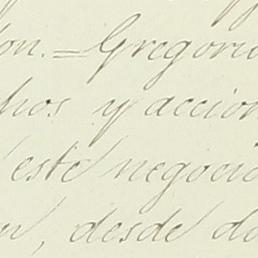 on. = Gregorio
hos y accion
este negocio
, desde do